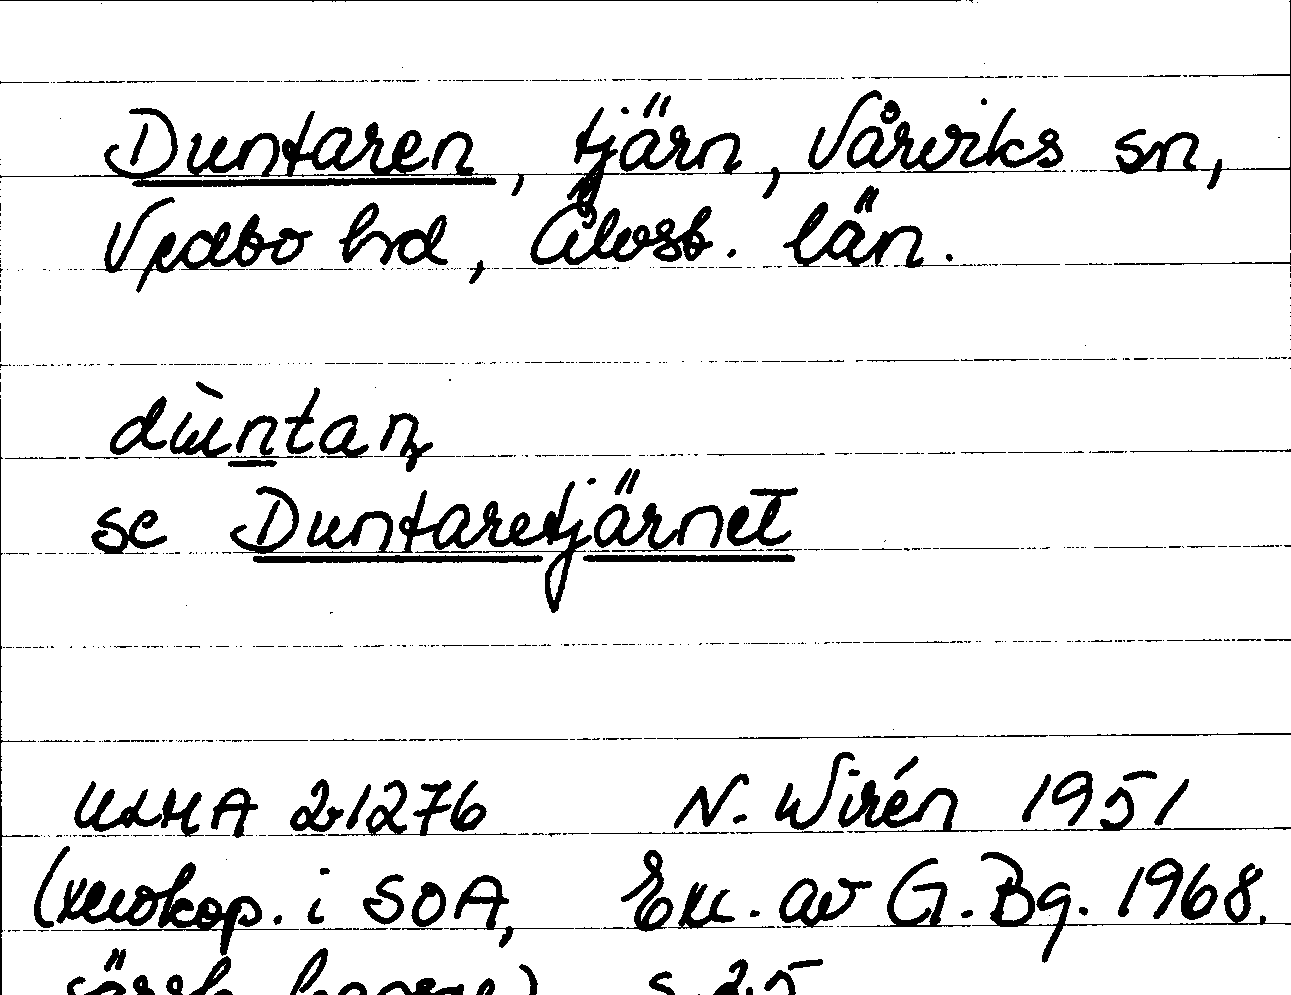 Duntaren, tjärn, Vårviks sn,
Vedbo hd, Älvsb. län.
dùntaꞃ
se Duntaretjärnet
ULMA 21276 N. Wirén 1951
(xerokop. i SOA, Exc. av G. Bg. 1968.
särsk. kapsel) s. 25